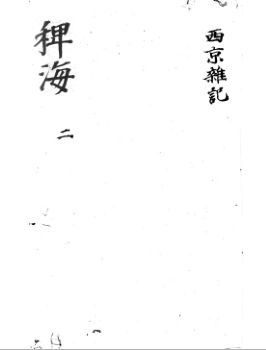 西京雜記
稗海
二